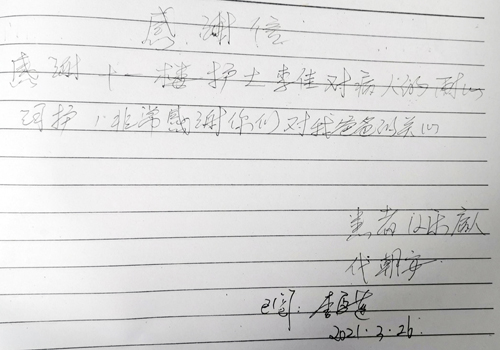 感谢信
感谢十一楼护士李佳对病人的耐心
呵护，非常感谢你们对我爸爸的关心
患者
代朝安
已阅：李
2021.3.26